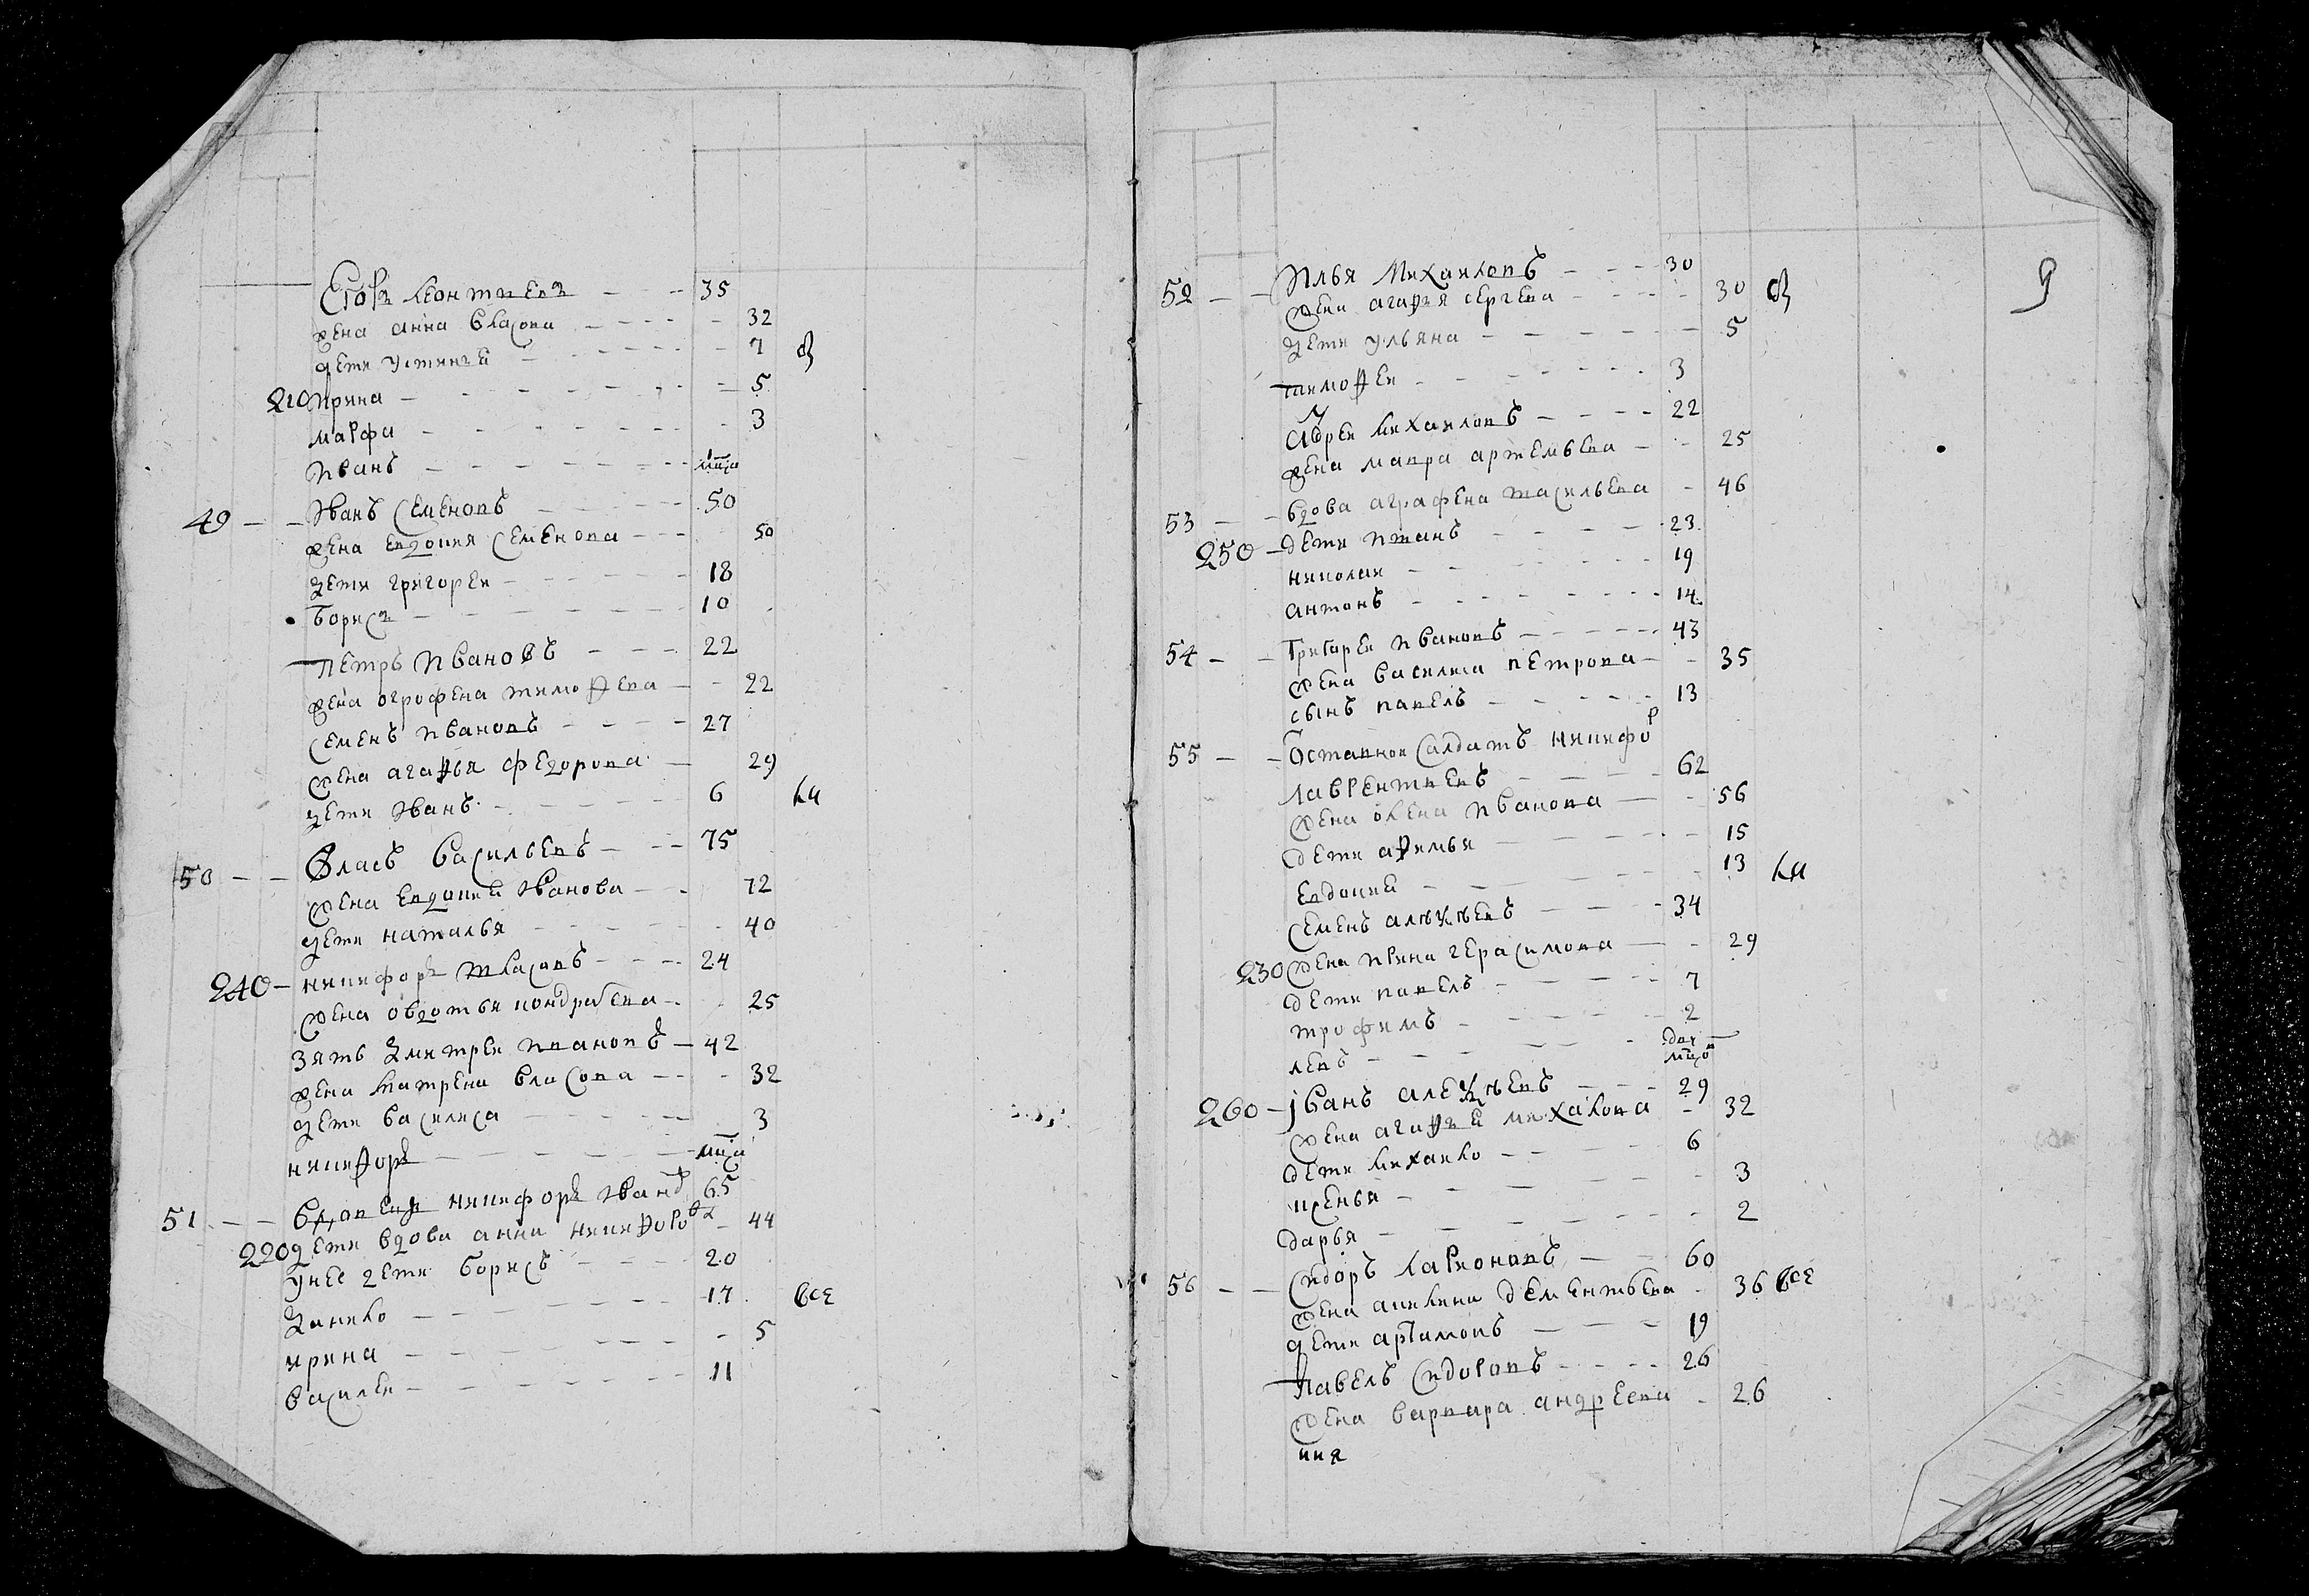 Егоръ Леонтиевъ - - - 35
жена анна власова - - - 32
дети устинья - - - 7
210 ирина - - - 5
марфа - - - 3
иванъ - - - мца
49 - - Иванъ Семеновъ - - - 50
жена евдокия Семенова - - - 50
дети григореи - - - 18
борисъ - - - 10
Петръ ивановъ - - - 22
жена огрофена тимофева - - 22
Семенъ ивановъ - - - 27
жена агафья федорова - 29
дети Иванъ - - - 6
50 - - Власъ васильевъ - - - 75
жена евдокия Иванова - - - 72
дети наталья - - - 40
240 - никифоръ власовъ - - - 24
жена овдотья кондратева - - 25
зять дмитреи ивановъ - 42
жена матрена власова - - - 32
дети василиса - - - 3
никифоръ - - - мца
51 - - никифоръ Иванъ 65
220 дети вдова анна никифорова - 44
унее дети борисъ - - - 20
данило - - - 17 все
ирина - - - 5
василеи - - - 11
9
52 - - Илья Михаиловъ - - - 30
жена агафья сергева - - - 30
дети ульяна - - - 5
тимофеи - - - 3
Адреи михаиловъ - - - 22
жена мавра артемьева - - 25
53 - - вдова аграфена васильева - 46
250 - дети иванъ - - - 23
николаи - - - 19
антонъ - - - 14
54 - - Григореи ивановъ - - - 43
жена василиса петрова - - 35
сынъ павелъ - - - 13
55 - - Оставнои Салдатъ никифоръ
лаврентиевъ - - - 62
жена олена иванова - - 56
дети афимья - - - 15
евдокия - - - 13
Семенъ алексеевъ - - - 34
230 жена ирина герасимова - - 29
дети павелъ - - - 7
трофимъ - - - 2
левъ - - - мцов
260 - iванъ алексеевъ - - - 29
жена агафья михаилова - 32
дети михаило - - - 6
ксенья - - - 3
дарья - - - 2
56 - - Сидоръ ларионовъ - - 60
жена акилина дементьева - 36 все
дети артамонъ - - - 19
Павелъ Сидоровъ - - - 26
жена варвара андреева - 26